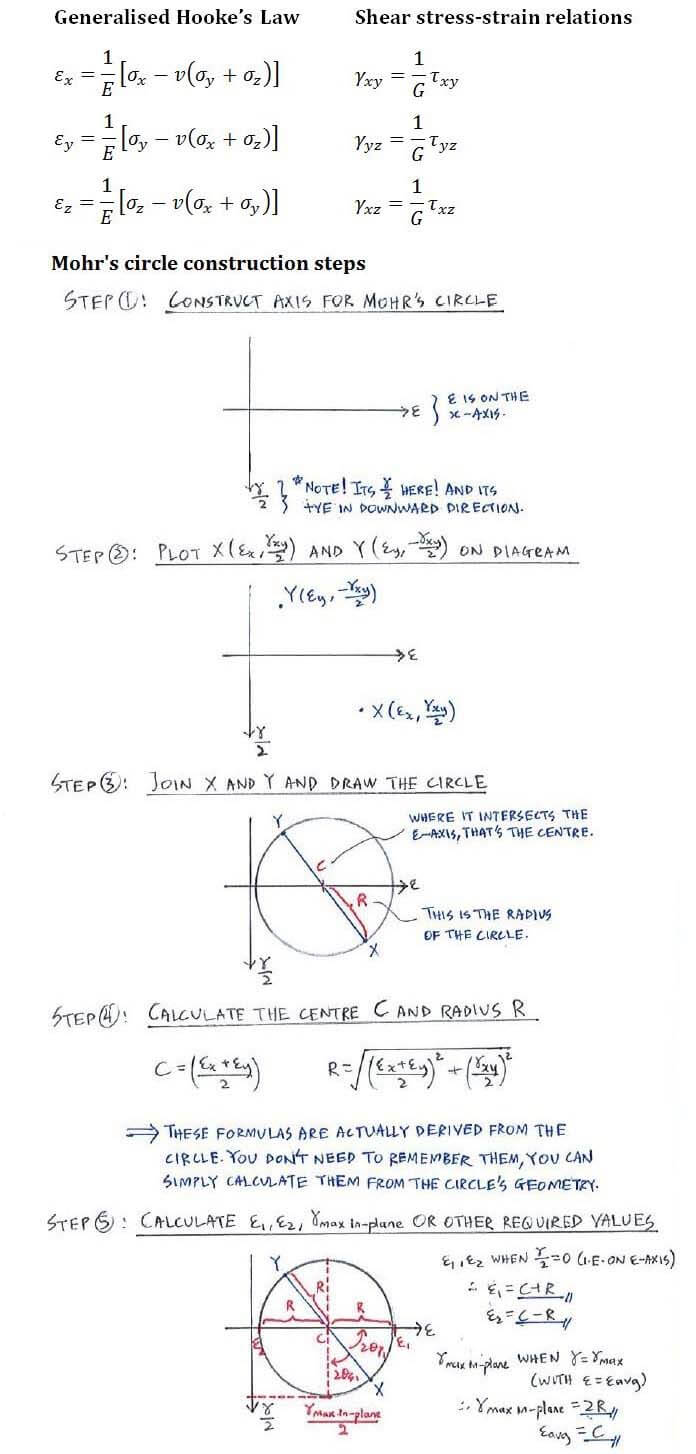 Generalised Hooke's Law Shear stress-strain relations
εx = 1/E [σx − ν(σy + σz)] γxy = 1/G τxy
εy = 1/E [σy − ν(σx + σz)] γyz = 1/G τyz
εz = 1/E [σz − ν(σx + σy)] γxz = 1/G τxz
Mohr's circle construction steps
STEP ①: CONSTRUCT AXIS FOR MOHR'S CIRCLE
ε } ε IS ON THE
x-AXIS.
γ/2 } *NOTE! ITS γ/2 HERE! AND ITS
+VE IN DOWNWARD DIRECTION.
STEP ②: PLOT X(εx, γxy/2) AND Y(εy, -γxy/2) ON DIAGRAM
Y(εy, -γxy/2)
ε
X(εx, γxy/2)
γ/2
STEP ③: JOIN X AND Y AND DRAW THE CIRCLE
Y WHERE IT INTERSECTS THE
ε-AXIS, THAT'S THE CENTRE.
C
ε
R
THIS IS THE RADIUS
OF THE CIRCLE.
X
γ/2
STEP ④: CALCULATE THE CENTRE C AND RADIUS R
C = (εx + εy / 2) R = √((εx + εy / 2)² + (γxy / 2)²)
⇒ THESE FORMULAS ARE ACTUALLY DERIVED FROM THE
CIRCLE. YOU DON'T NEED TO REMEMBER THEM, YOU CAN
SIMPLY CALCULATE THEM FROM THE CIRCLE'S GEOMETRY.
STEP ⑤: CALCULATE ε1, ε2, γmax in-plane OR OTHER REQUIRED VALUES
Y
R
R R
ε
ε2 C 2θp1 ε1
2θs1
X
γ/2 γmax in-plane/2
ε1, ε2 WHEN γ/2 = 0 (I.E. ON ε-AXIS)
∴ ε1 = C+R
ε2 = C-R
γmax in-plane WHEN γ = γmax
(WITH ε = εavg)
∴ γmax in-plane = 2R
εavg = C